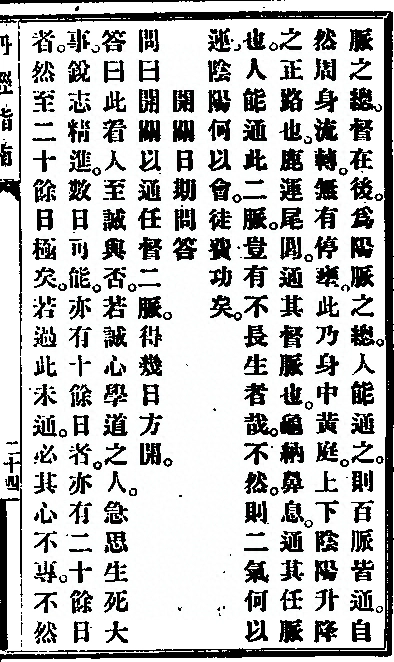 脈之總。督在後。爲陽脈之總。人能通之。則百脈皆通。自
然周身流轉。無有停壅。此乃身中黃庭。上下陰陽升降
之正路也。鹿運尾閭。通其督脈也。龜納鼻息。通其任脈
也。人能通此二脈。豈有不長生者哉。不然。則二氣何以
運。陰陽何以會。徒費功矣。
開關日期問答
問曰開關以通任督二脈。得幾日方開。
答曰此看人至誠與否。若誠心學道之人。急思生死大
事。銳志精進。數日可能。亦有十餘日者。亦有二十餘日
者。然至二十餘日極矣。若過此未通。必其心不專。不然
丹經指南
二十四